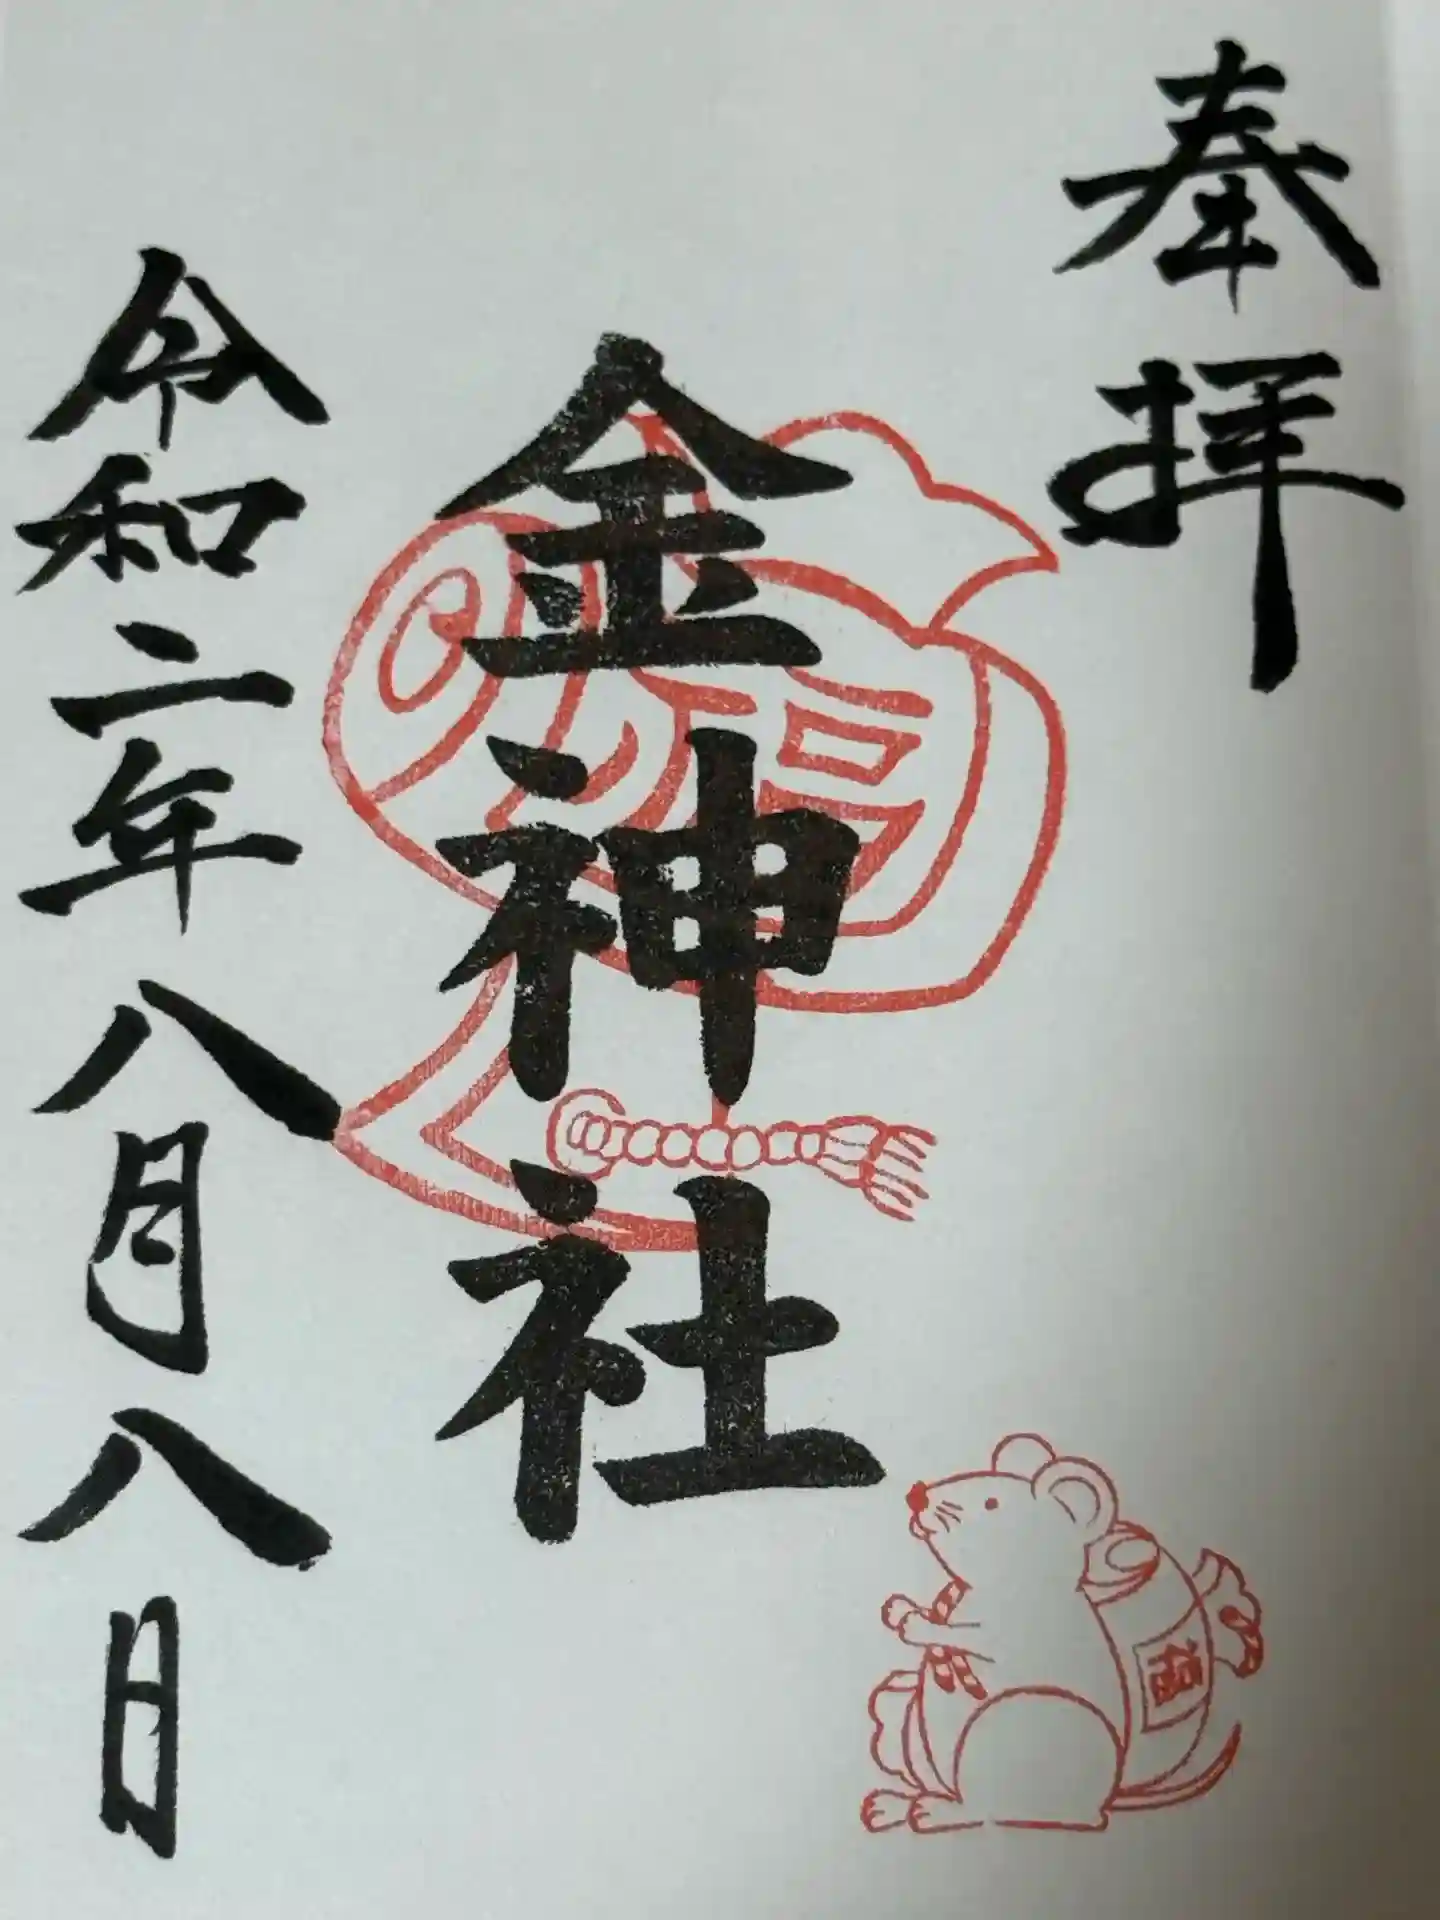 奉拝
金神社
福
令和二年八月八日
福